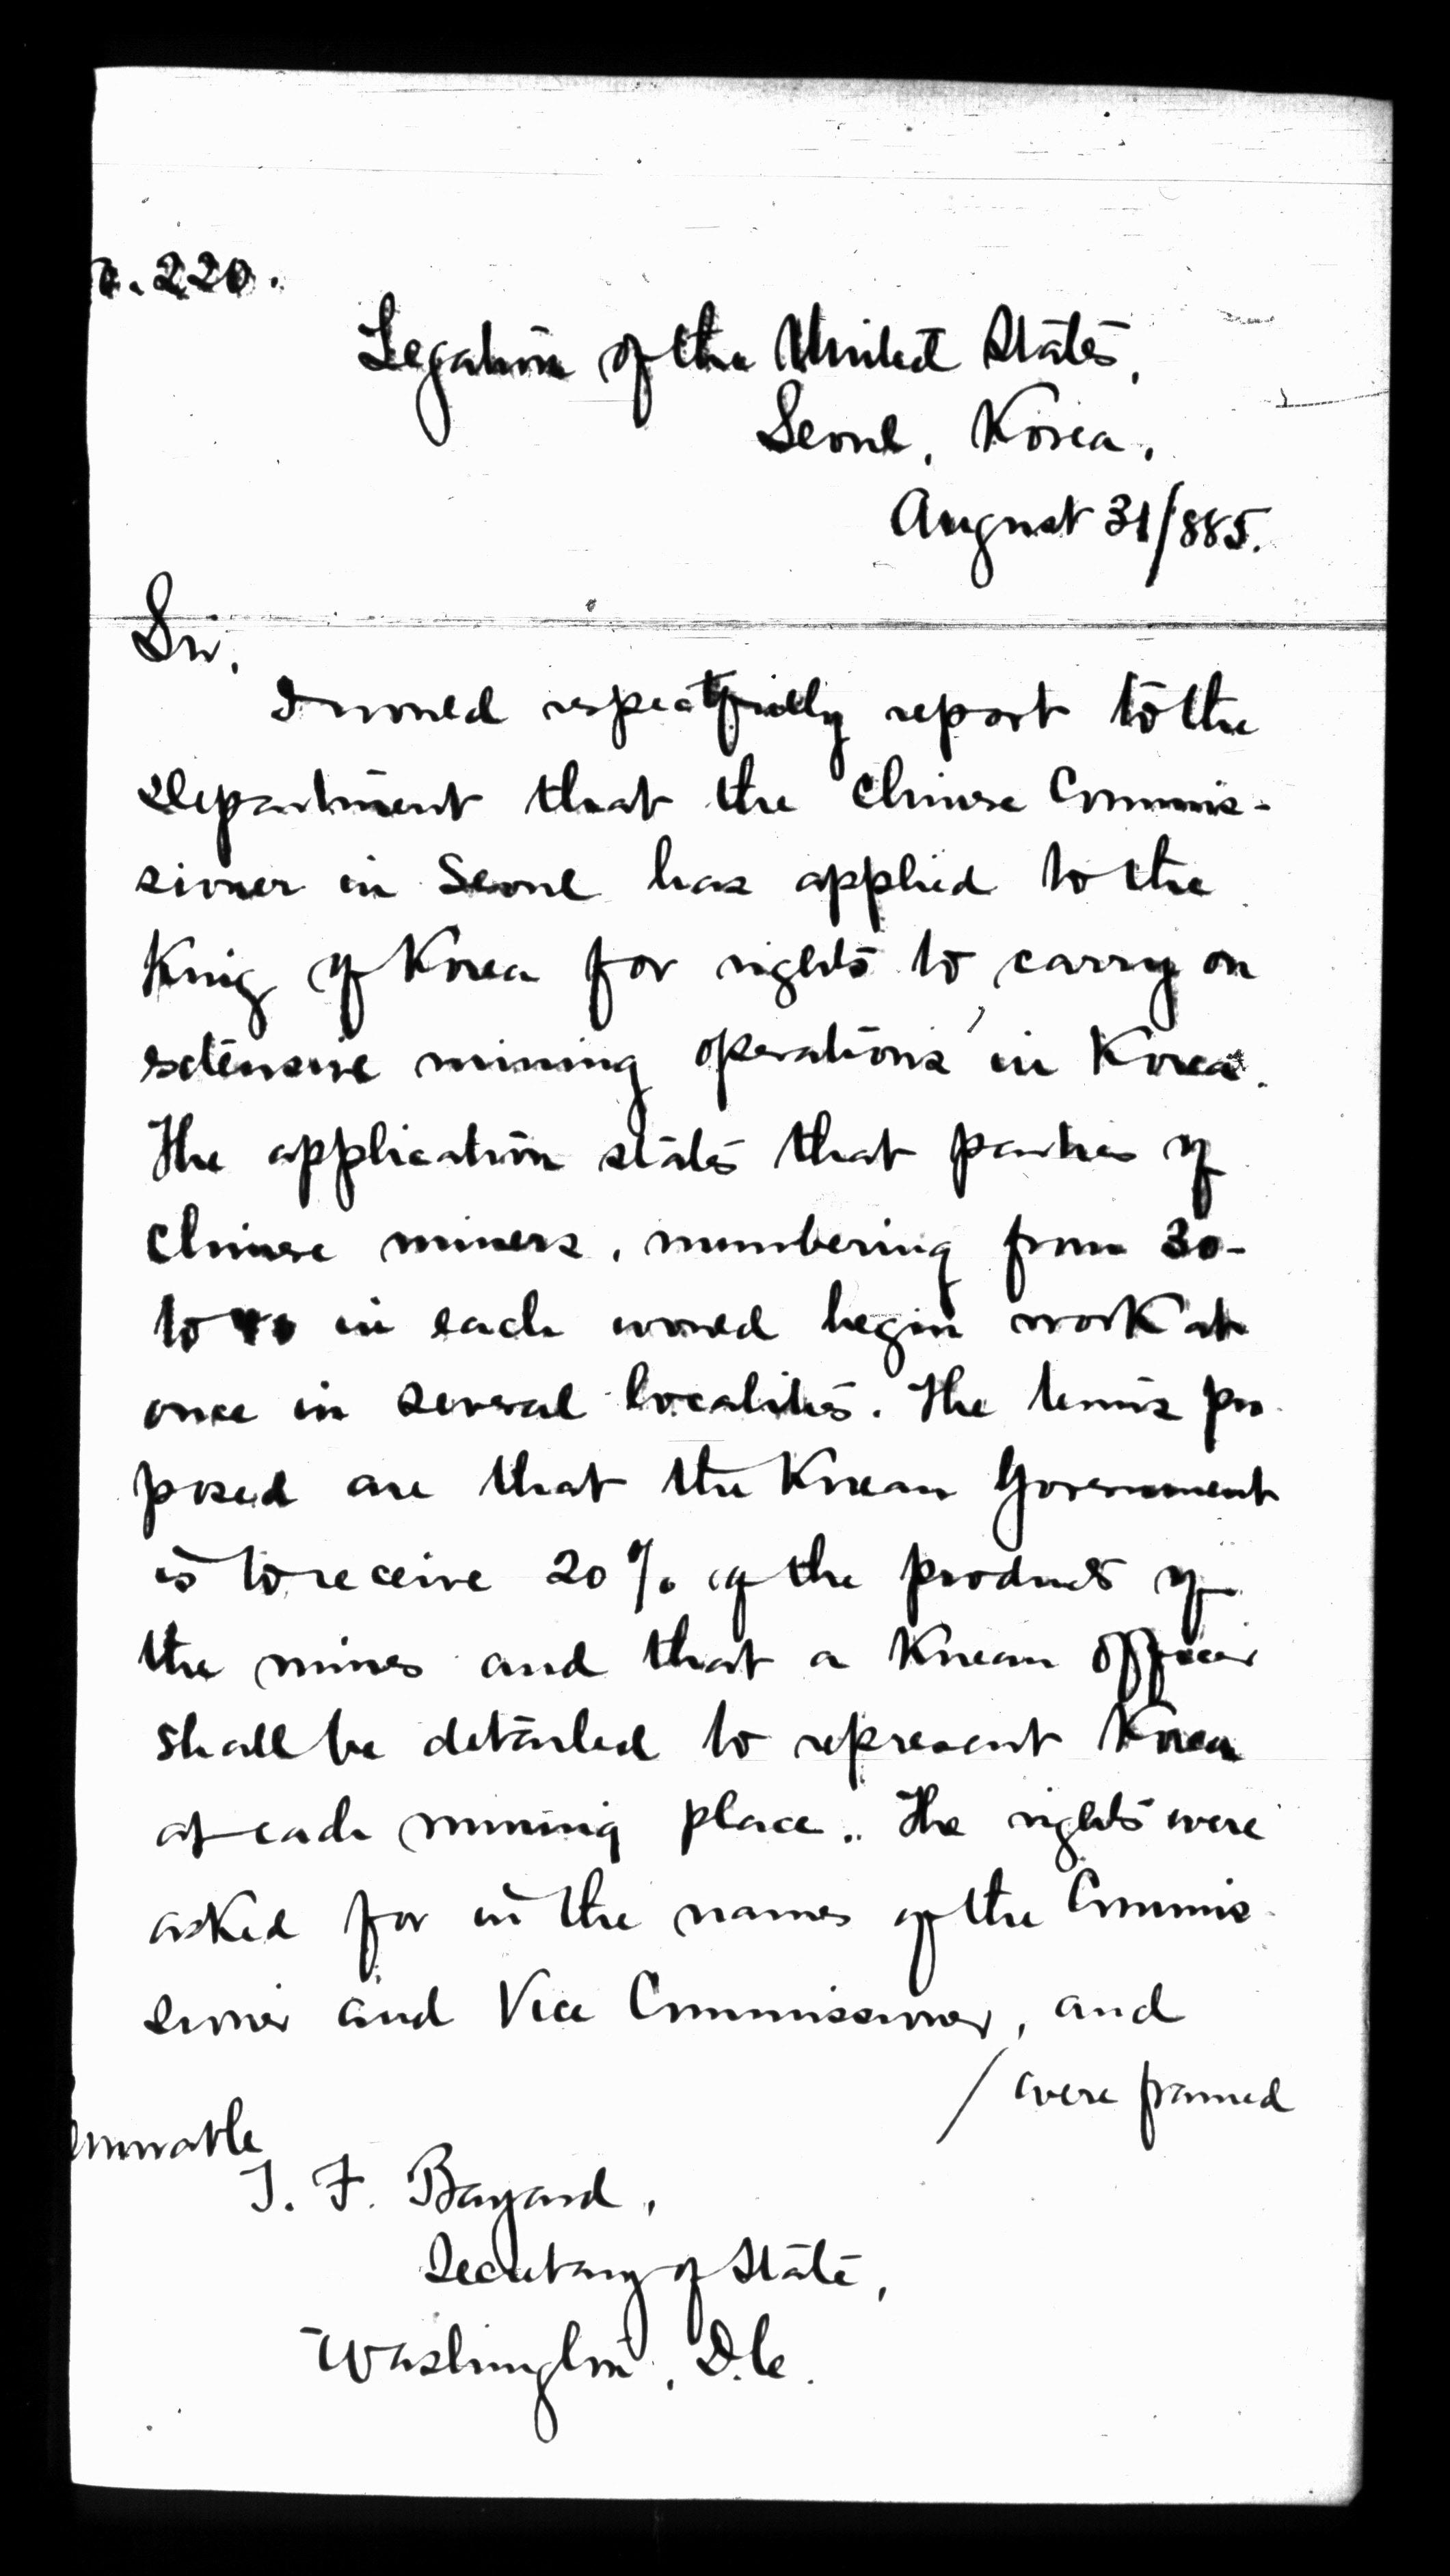 o. 220.
Legation of the United States,
Seoul, Korea,
August 31/885.
Sir,
I would respectfully report to the
Department that the Chinese Commis-
sioner in Seoul has applied to the
King of Korea for rights to carry on
extensive mining operations in Korea.
The application states that parties of
Chinese miners, numbering from 30-
to 40 in each would begin work at
once in several localities. The terms pro-
posed are that the Korean Government
is to receive 20% of the products of
the mines and that a Korean officer
shall be detailed to represent Korea
at each mining place. The rights were
asked for in the names of the Commis-
sioner and Vice Commissioner, and
/ were framed
onorable
T. F. Bayard,
Secretary of State,
Washington, D.C.